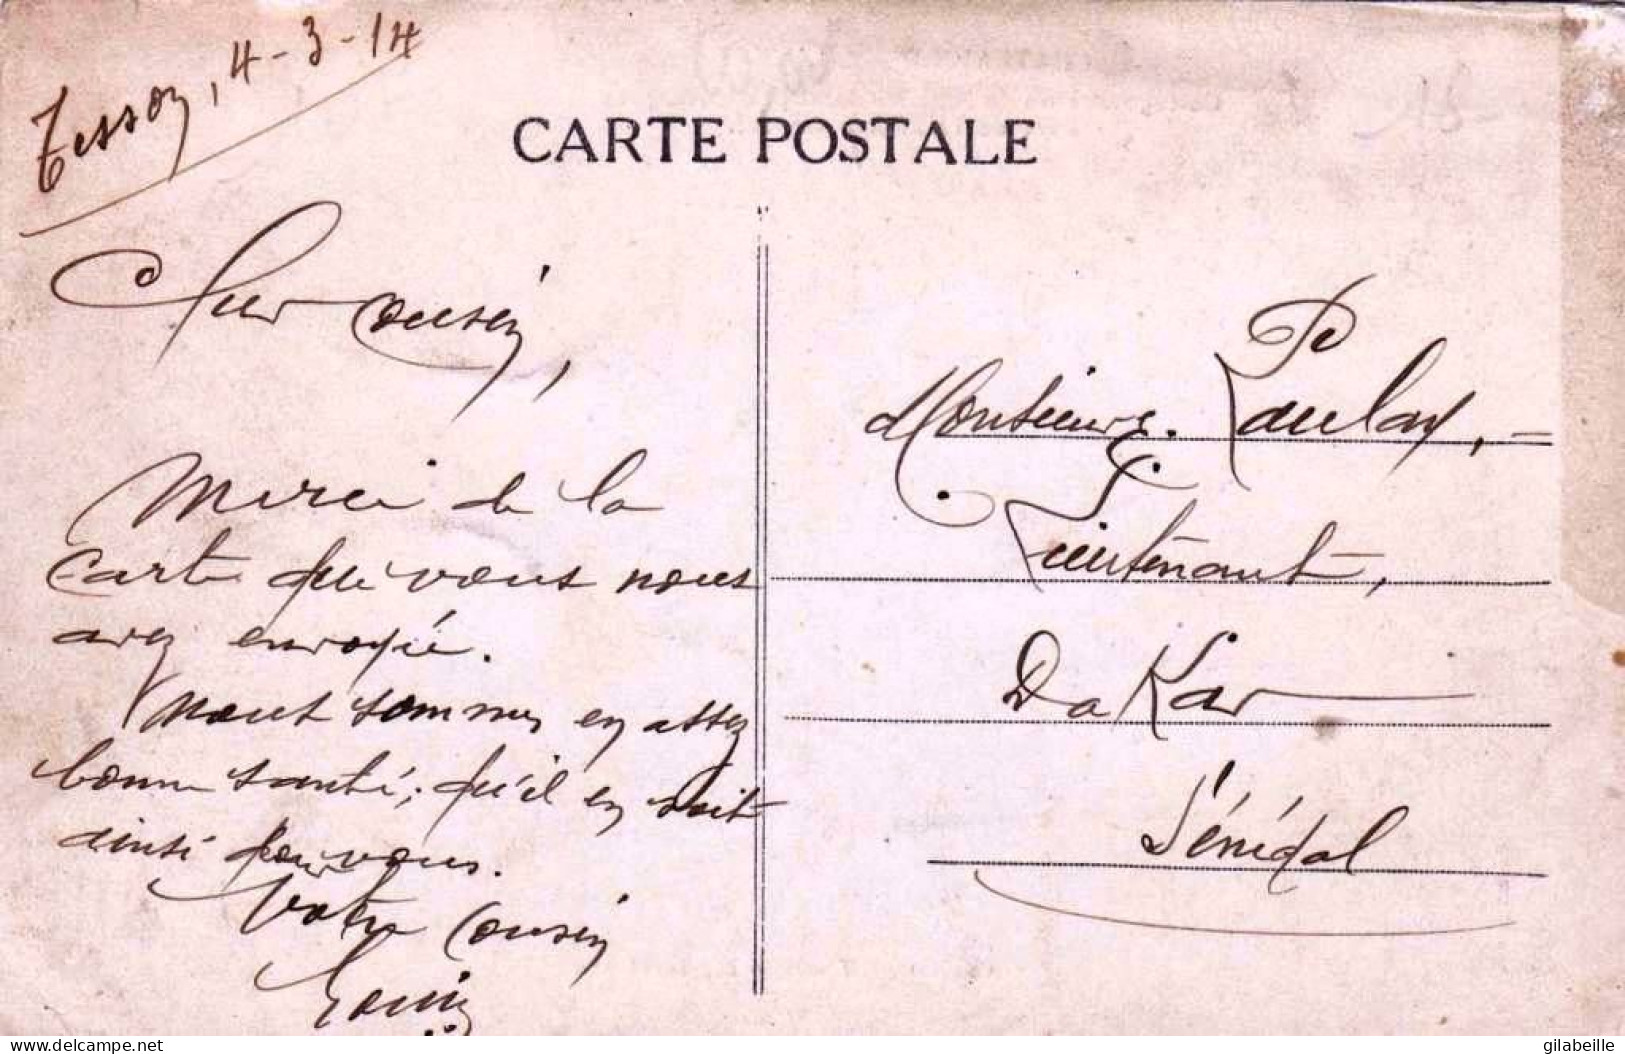 Tesson, 4-3-14
CARTE POSTALE
Cher cousin,
Merci de la
carte que vous nous
avez envoyée.
Nous sommes en assez
bonne santé; qu'il en soit
ainsi pour vous.
Votre Cousin
Louis
Monsieur
Lieutenant,
Dakar
Sénégal
delcampe.net
gilabeille